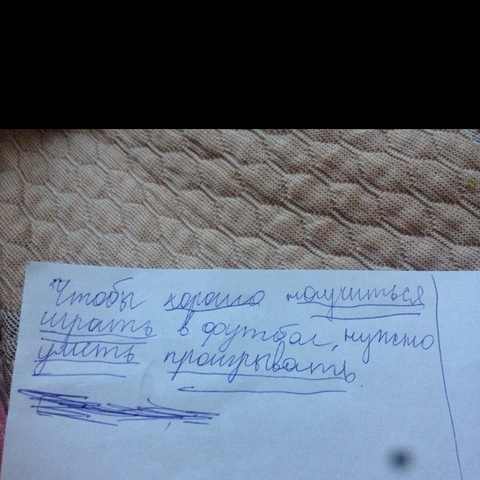 Чтобы хорошо научиться
играть в футбол, нужно
уметь проигрывать.